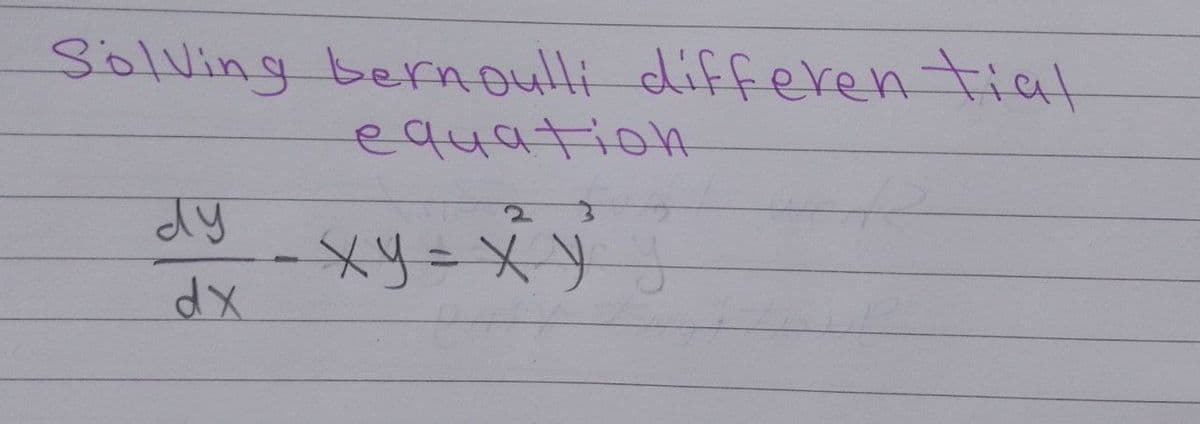 Solving bernoulli differential
equation
dy/dx - xy = x² y³